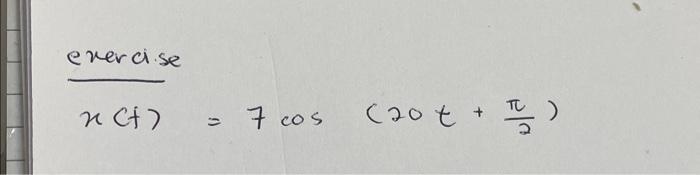 exercise
x(t) = 7 cos (20t + π/2)